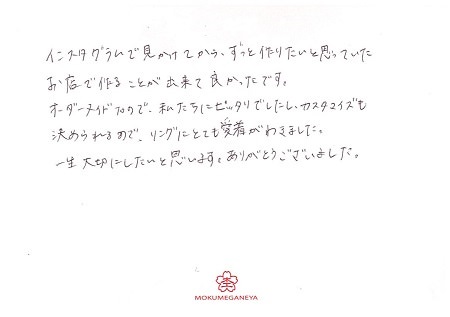 インスタグラムで見かけてから、ずっと作りたいと思っていた
お店で作ることが出来て良かったです。
オーダーメイドなので、私たちにピッタリでしたし、カスタマイズも
決められるので、リングにとても愛着がわきました。
一生大切にしたいと思います。ありがとうございました。
MOKUMEGANEYA